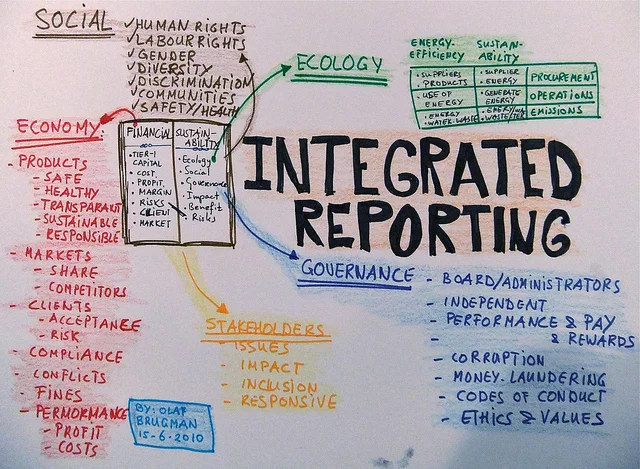 SOCIAL
✓HUMAN RIGHTS
✓LABOUR RIGHTS
✓GENDER
✓DIVERSITY
✓DISCRIMINATION
✓COMMUNITIES
✓SAFETY/HEALTH
ECOLOGY
ENERGY-EFFICIENCY
SUSTAIN-ABILITY
• SUPPLIERS PRODUCTS
• SUPPLIER ENERGY
PROCUREMENT
• USE OF ENERGY
• GENERATE ENERGY
OPERATIONS
• ENERGY
WATER-WASTE
EMISSIONS
INTEGRATED
REPORTING
FINANCIAL
• TIER-1 CAPITAL
• COST.
• PROFIT.
• MARGIN
• RISKS
• CLIENT
• MARKET
SUSTAIN-ABILITY
• Ecology
• Social
• Governance
• Impact
• Benefit
• Risks
ECONOMY:
- PRODUCTS
- SAFE
- HEALTHY
- TRANSPARANT
- SUSTAINABLE
- RESPONSIBLE
- MARKETS
- SHARE
- COMPETITORS
- CLIENTS
- ACCEPTANCE
- RISK
- COMPLIANCE
- CONFLICTS
- FINES
- PERMORMANCE
- PROFIT
- COSTS
STAKEHOLDERS
- ISSUES
- IMPACT
- INCLUSION
- RESPONSIVE
GOVERNANCE
- BOARD/ADMINISTRATORS
- INDEPENDENT
- PERFORMANCE & PAY
- & REWARDS
- CORRUPTION
- MONEY-LAUNDERING
- CODES OF CONDUCT
- ETHICS & VALUES
BY: OLAF
BRUGMAN
15-6-2010